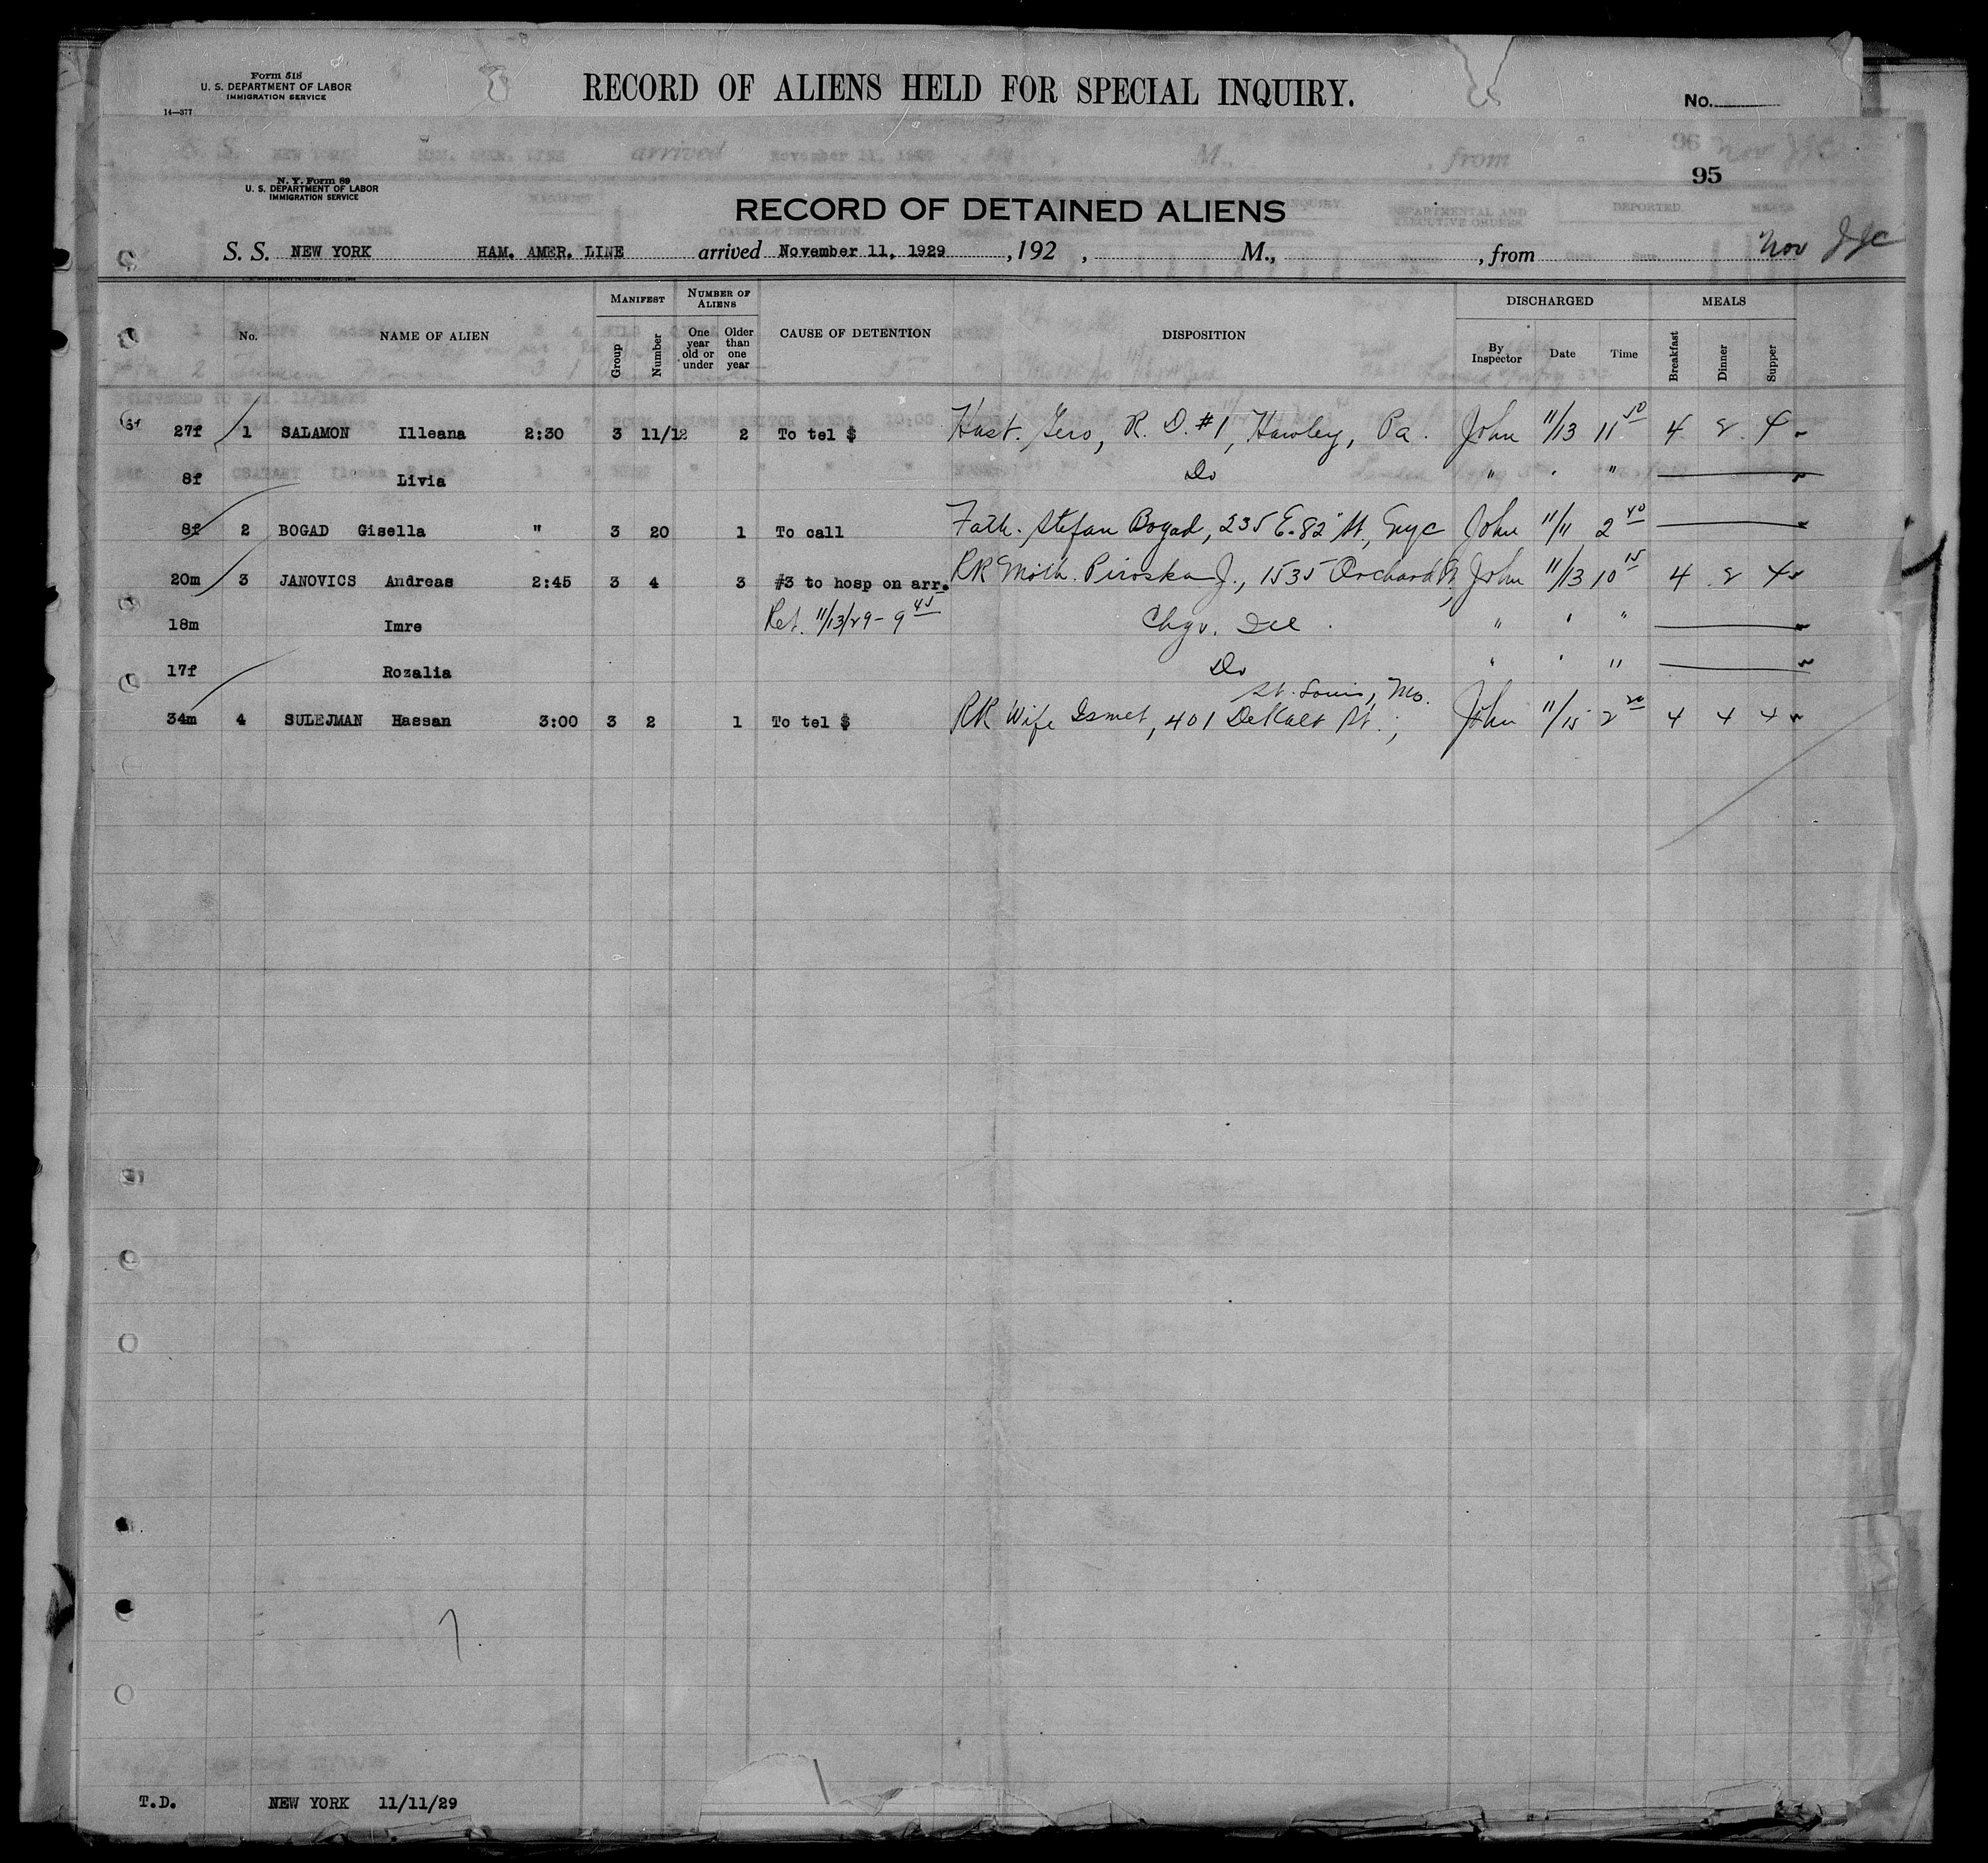 Form 518
U. S. DEPARTMENT OF LABOR
IMMIGRATION SERVICE
14—377
RECORD OF ALIENS HELD FOR SPECIAL INQUIRY.
No.
S. S. NEW YORK HAM. AMER. LINE arrived November 11, 1929 M., , from 96 Nov JJC
95
N. Y. Form 89
U. S. DEPARTMENT OF LABOR
IMMIGRATION SERVICE
RECORD OF DETAINED ALIENS
S. S. NEW YORK HAM. AMER. LINE arrived November 11, 1929 , 192 , M., , from Nov JJC
No. NAME OF ALIEN MANIFEST Group Number NUMBER OF ALIENS One year old or under Older than one year CAUSE OF DETENTION DISPOSITION DISCHARGED By Inspector Date Time MEALS Breakfast Dinner Supper
27f 1 SALAMON Illeana 2:30 3 11/12 2 To tel $ Hust. Gero, R. D. #1, Hawley, Pa. John 11/13 11 50 4 2 4
8f Livia Do " " "
8f 2 BOGAD Gisella " 3 20 1 To call Fath. Stefan Bogad, 235 E. 82" St., Nyc John 11/11 2 40
20m 3 JANOVICS Andreas 2:45 3 4 3 #3 to hosp on arr. RR Moth. Piroska J., 1535 Orchard St, John 11/13 10 15 4 2 4
18m Imre Ret. 11/13/29 - 9 45 Chgo. Ill. " " "
17f Rozalia Do " " "
St. Louis, Mo.
34m 4 SULEJMAN Hassan 3:00 3 2 1 To tel $ RR Wife Ismet, 401 DeKalb St.; John 11/15 2 20 4 4 4
T.D. NEW YORK 11/11/29